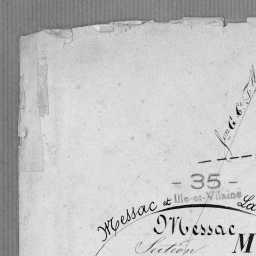 - 35 -
Ille-et-Vilaine
Messac et La
Messac
Section
M